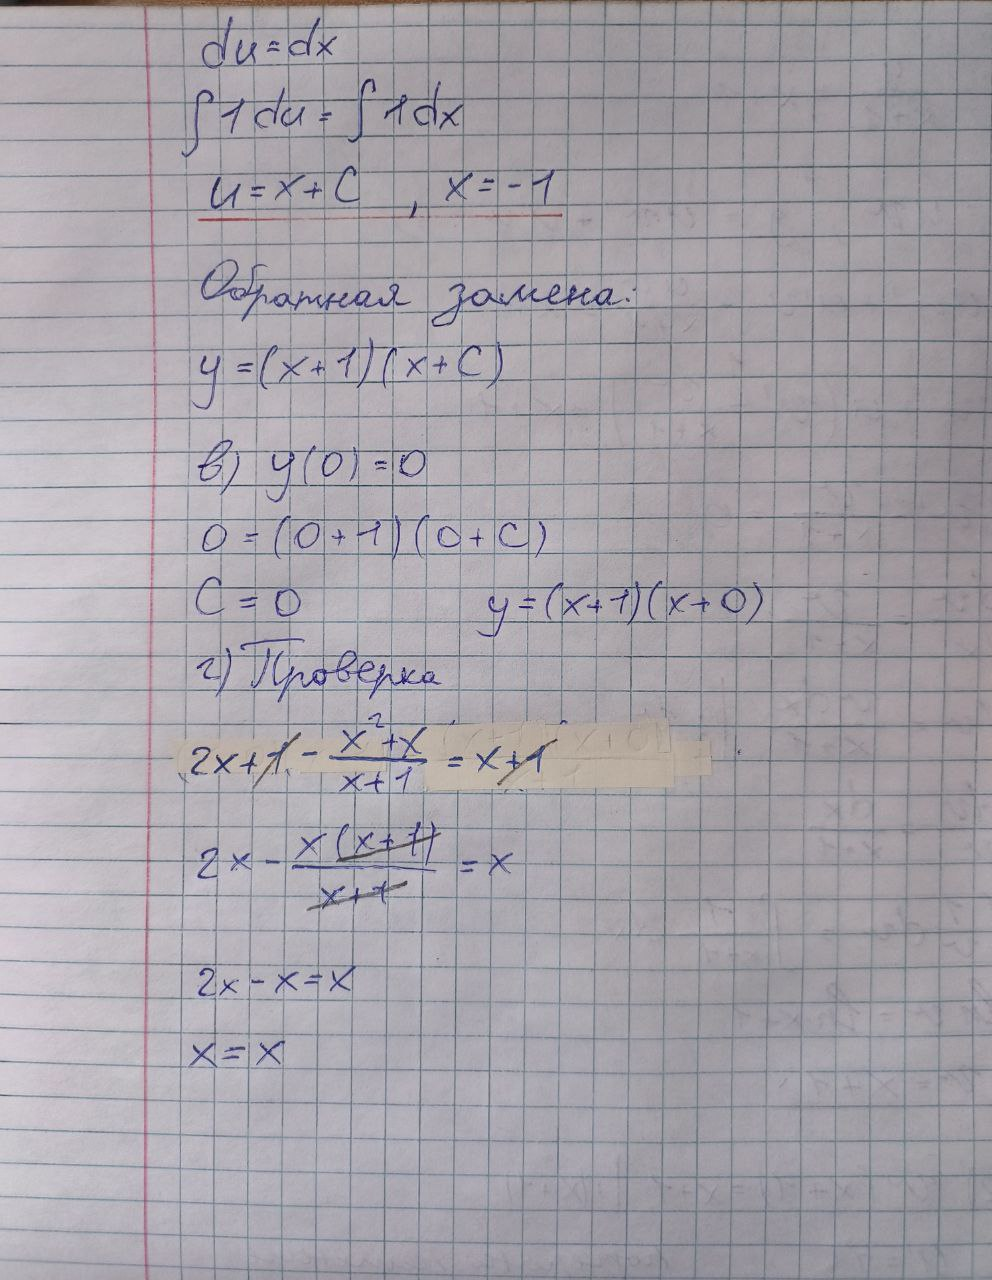 du = dx
∫ 1 du = ∫ 1 dx
u = x + C , x = -1
Обратная замена:
y = (x+1)(x+C)
в) y(0) = 0
0 = (0+1)(0+C)
C = 0 y = (x+1)(x+0)
г) Проверка
2x+1 - (x²+x)/(x+1) = x+1
2x - x(x+1)/(x+1) = x
2x - x = x
x = x